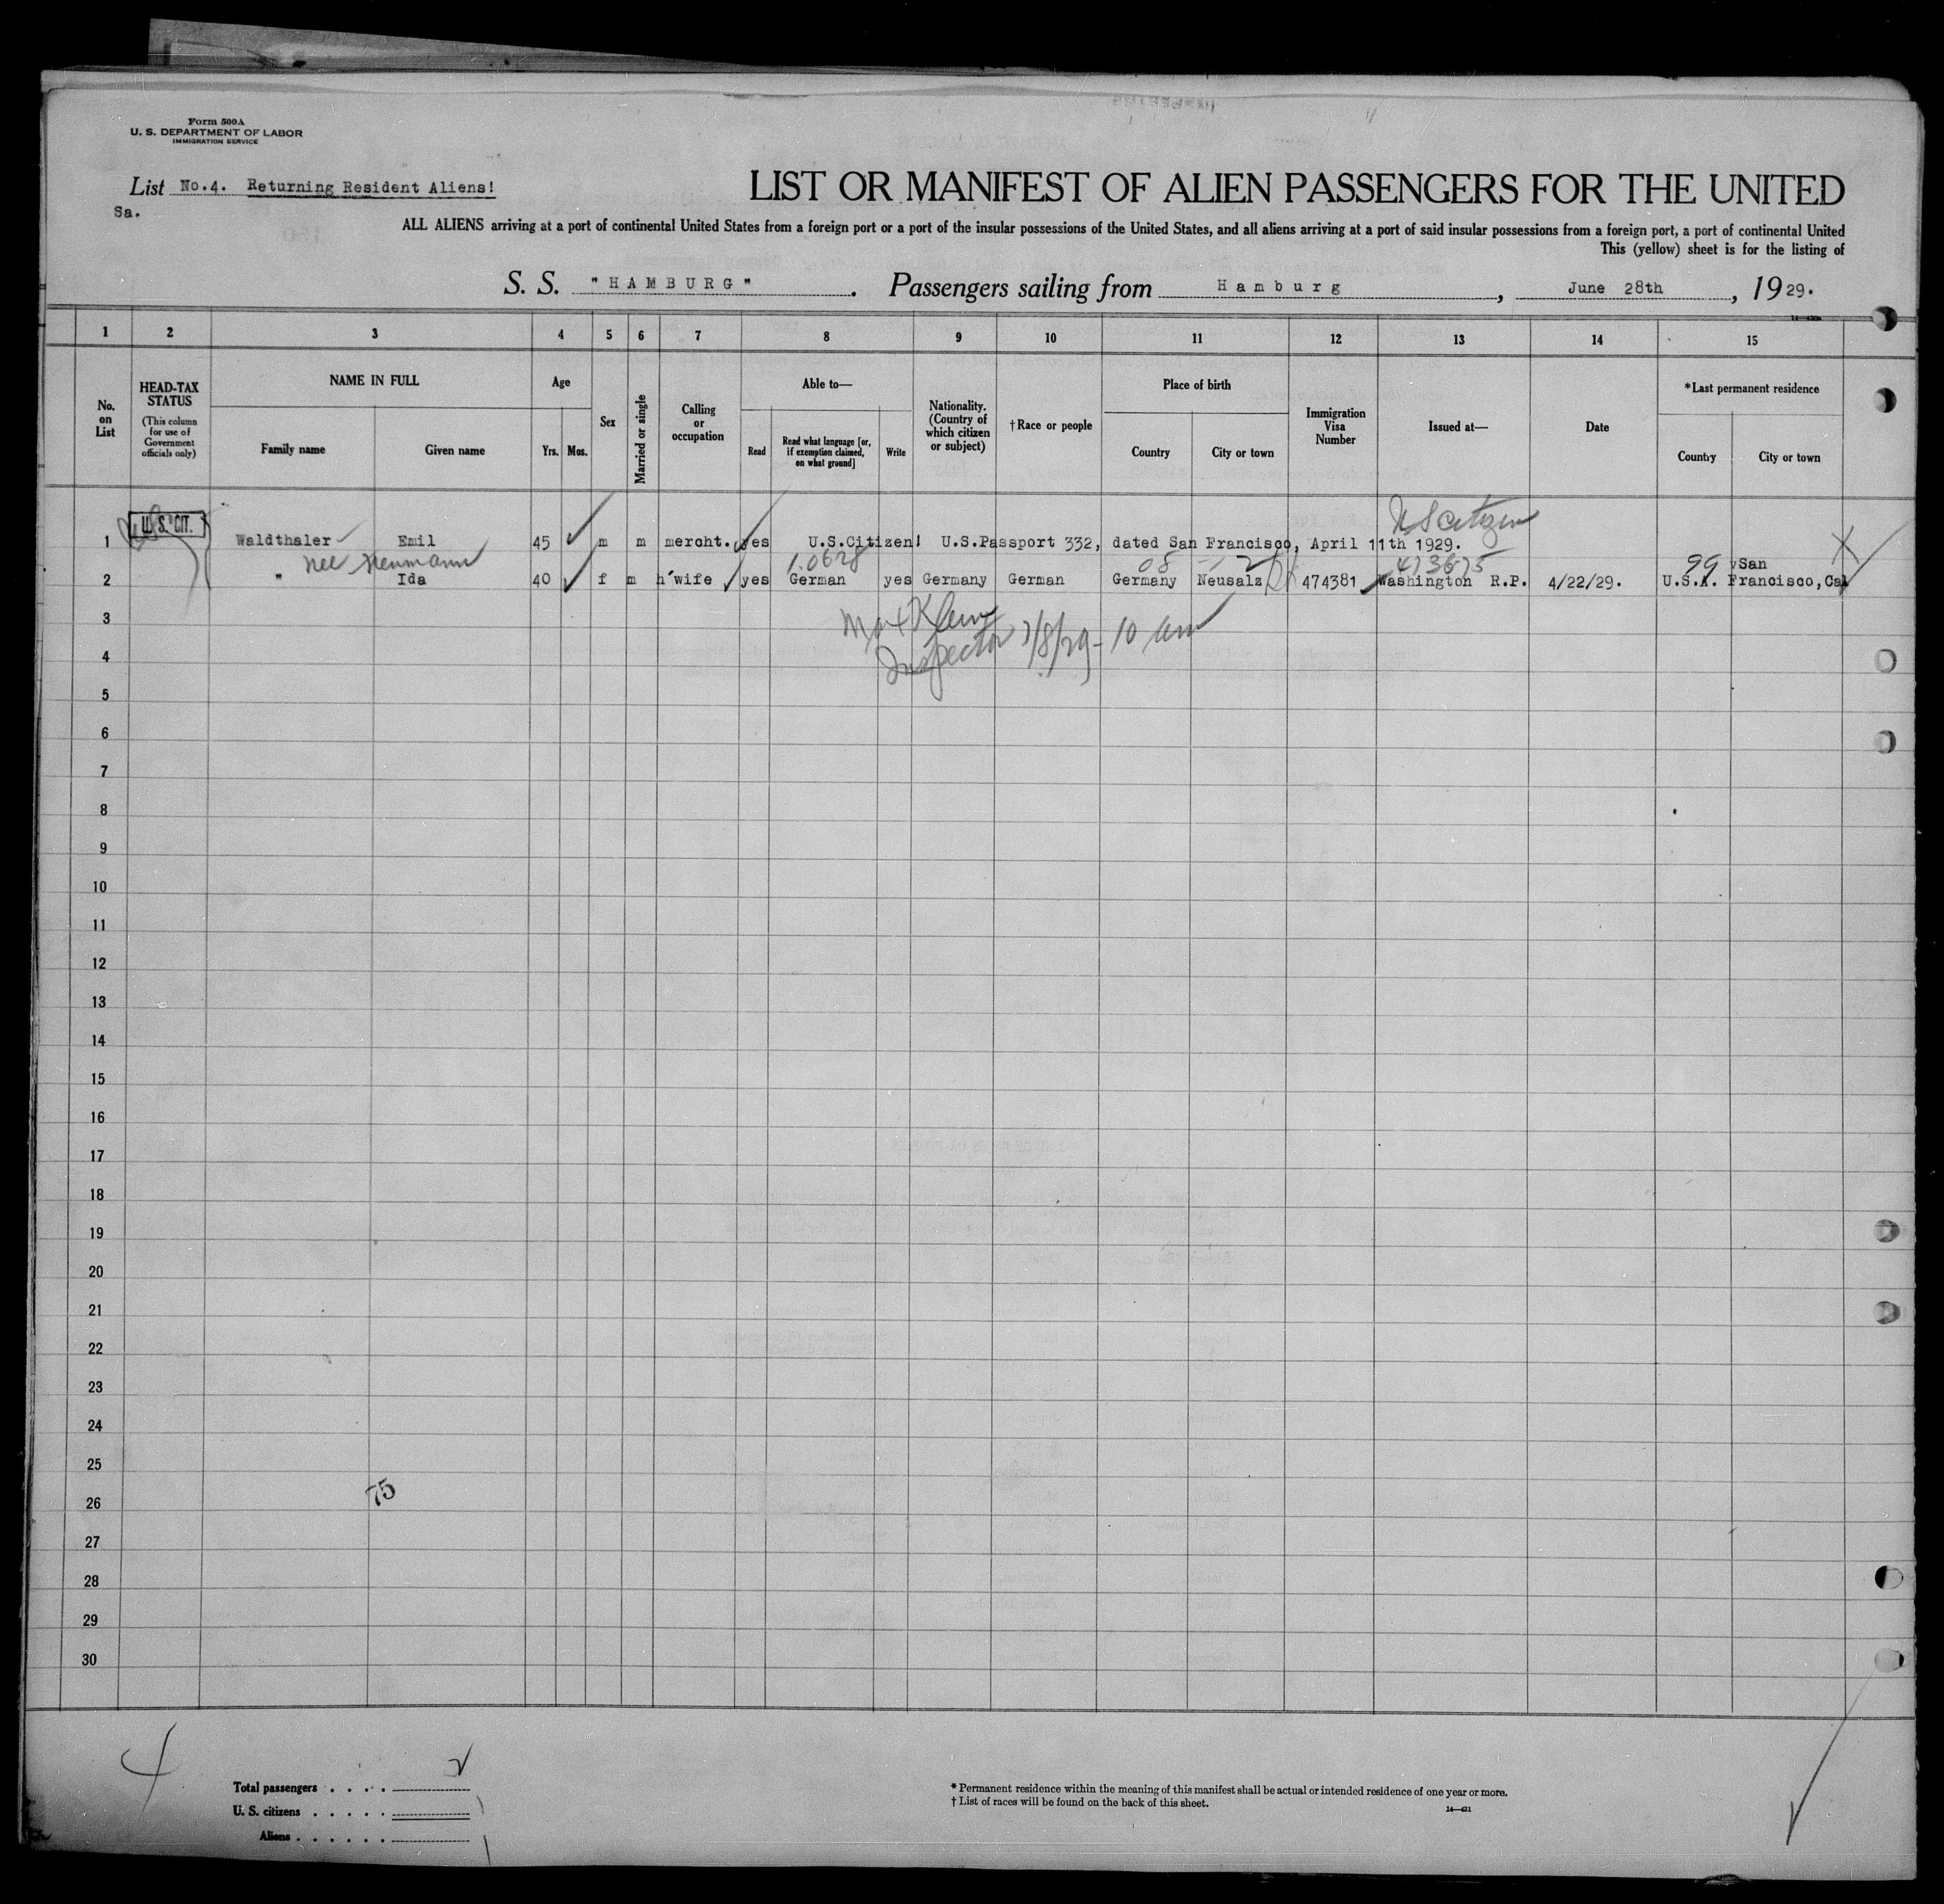 Form 500A
U. S. DEPARTMENT OF LABOR
IMMIGRATION SERVICE
List No.4. Returning Resident Aliens!
Sa.
LIST OR MANIFEST OF ALIEN PASSENGERS FOR THE UNITED
ALL ALIENS arriving at a port of continental United States from a foreign port or a port of the insular possessions of the United States, and all aliens arriving at a port of said insular possessions from a foreign port, a port of continental United
This (yellow) sheet is for the listing of
S. S. "HAMBURG". Passengers sailing from Hamburg, June 28th, 1929.
1 2 3 4 5 6 7 8 9 10 11 12 13 14 15
No. on List
HEAD-TAX STATUS
(This column for use of Government officials only)
NAME IN FULL
Family name Given name
Age
Yrs. Mos.
Sex
Married or single
Calling or occupation
Able to—
Read
Read what language [or, if exemption claimed, on what ground]
Write
Nationality. (Country of which citizen or subject)
†Race or people
Place of birth
Country City or town
Immigration Visa Number
Issued at—
Date
*Last permanent residence
Country City or town
U.S. CIT. U S citizen
1 Waldthaler Emil 45 m m mercht. yes U.S.Citizen! U.S.Passport 332, dated San Francisco, April 11th 1929.
nee Neumann 08 473675 99 San
2 " Ida 40 f m h'wife yes German yes Germany German Germany Neusalz 474381 Washington R.P. 4/22/29. U.S.A. Francisco,Cal
3
Max Klein
Inspector 7/8/29 - 10 am
4
5
6
7
8
9
10
11
12
13
14
15
16
17
18
19
20
21
22
23
24
25
75
26
27
28
29
30
4
Total passengers . . . . 2
U. S. citizens . . . . . 1
Aliens . . . . . . 1
* Permanent residence within the meaning of this manifest shall be actual or intended residence of one year or more.
† List of races will be found on the back of this sheet.
14—431